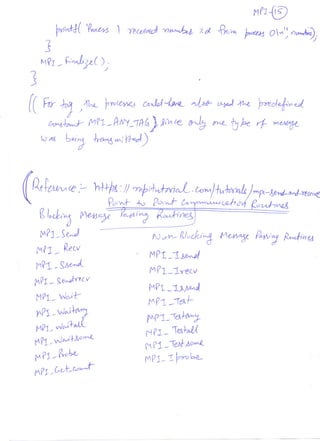 MPI-(15)
printf( "Process 1 received number %d from process 0\n", number);
}
MPI_Finalize();
}
(( For tag, the processes could have also used the predefined
constant MPI_ANY_TAG) since only one type of message
was being transmitted)
(Reference:- https://mpitutorial.com/tutorials/mpi-send-and-receive
Point to Point Communication Routines
Blocking Message Passing Routines
Non-Blocking Message Passing Routines
MPI_Send
MPI_Recv
MPI_Ssend
MPI_Sendrecv
MPI_Wait
MPI_Waitany
MPI_Waitall
MPI_Waitsome
MPI_Probe
MPI_Get_count
MPI_Isend
MPI_Irecv
MPI_Issend
MPI_Test
MPI_Testany
MPI_Testall
MPI_Testsome
MPI_Iprobe